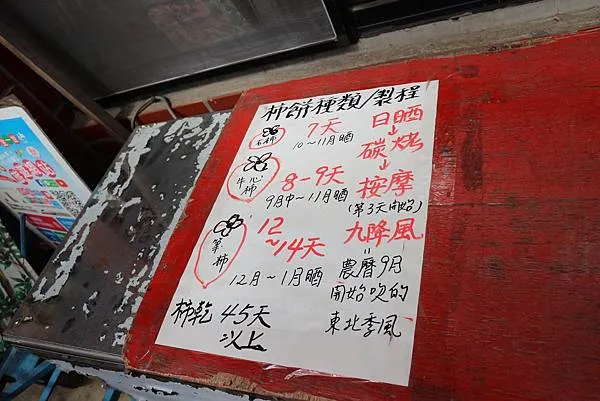 柿餅種類/製程
石柿
7天
10~11月晒
牛心柿
8-9天
9月中~11月晒
筆柿
12~14天
12月~1月晒
柿乾 45天以上
日晒
↓
碳烤
↓
按摩
(第3天開始)
九降風
=
農曆9月
開始吹的
東北季風